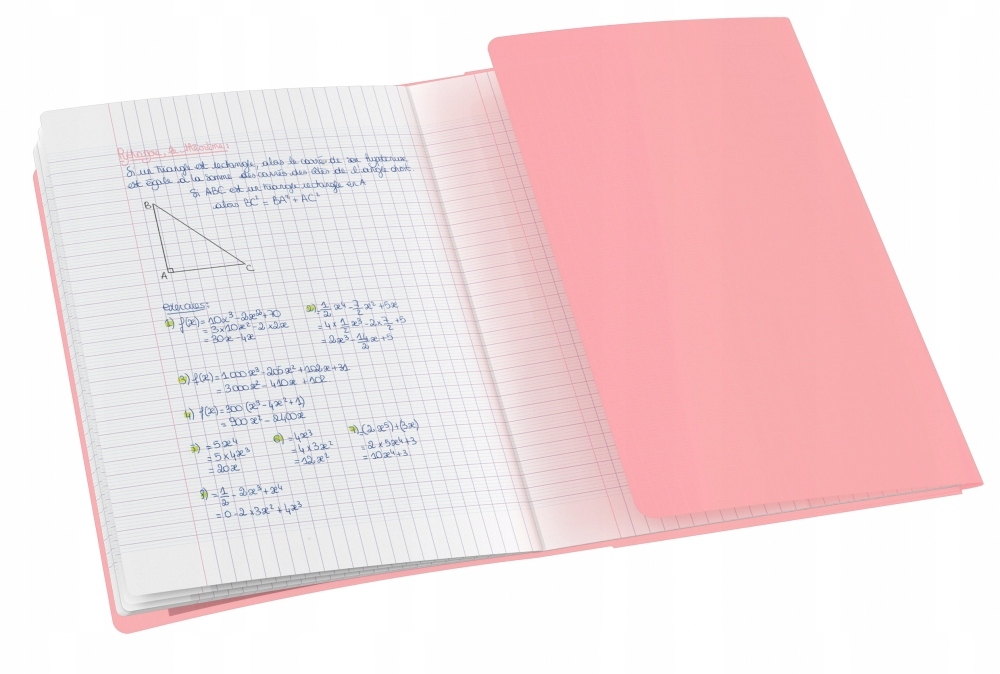 Si un triangle est rectangle, alors le carré de son hypoténuse
est égale à la somme des carrés des côtés de l'angle droit
Si ABC est un triangle rectangle en A
alors BC² = BA² + AC²
B
A
C
exercices:
1) f(x) = 10x³ - 2x² + 70
= 3×10x² - 2×2x
= 30x - 4x
2) = 1/2 x⁴ - 7/2 x² + 5x
= 4×1/2 x³ - 2×7/2 + 5
= 2x³ - 14/2 x + 5
3) f(x) = 1000x³ - 205x² + 102x + 31
= 3000x² - 410x + 102
4) f(x) = 300(x³ - 4x² + 1)
= 900x² - 2400x
= 5x⁴
= 5×4x³
= 20x
6) = 4x³
= 4×3x²
= 12x²
7) = (2x⁵) + (3x)
= 2×5x⁴ + 3
= 10x⁴ + 3
= 1/2 - 2x³ + x⁴
= 0 - 2×3x² + 4x³